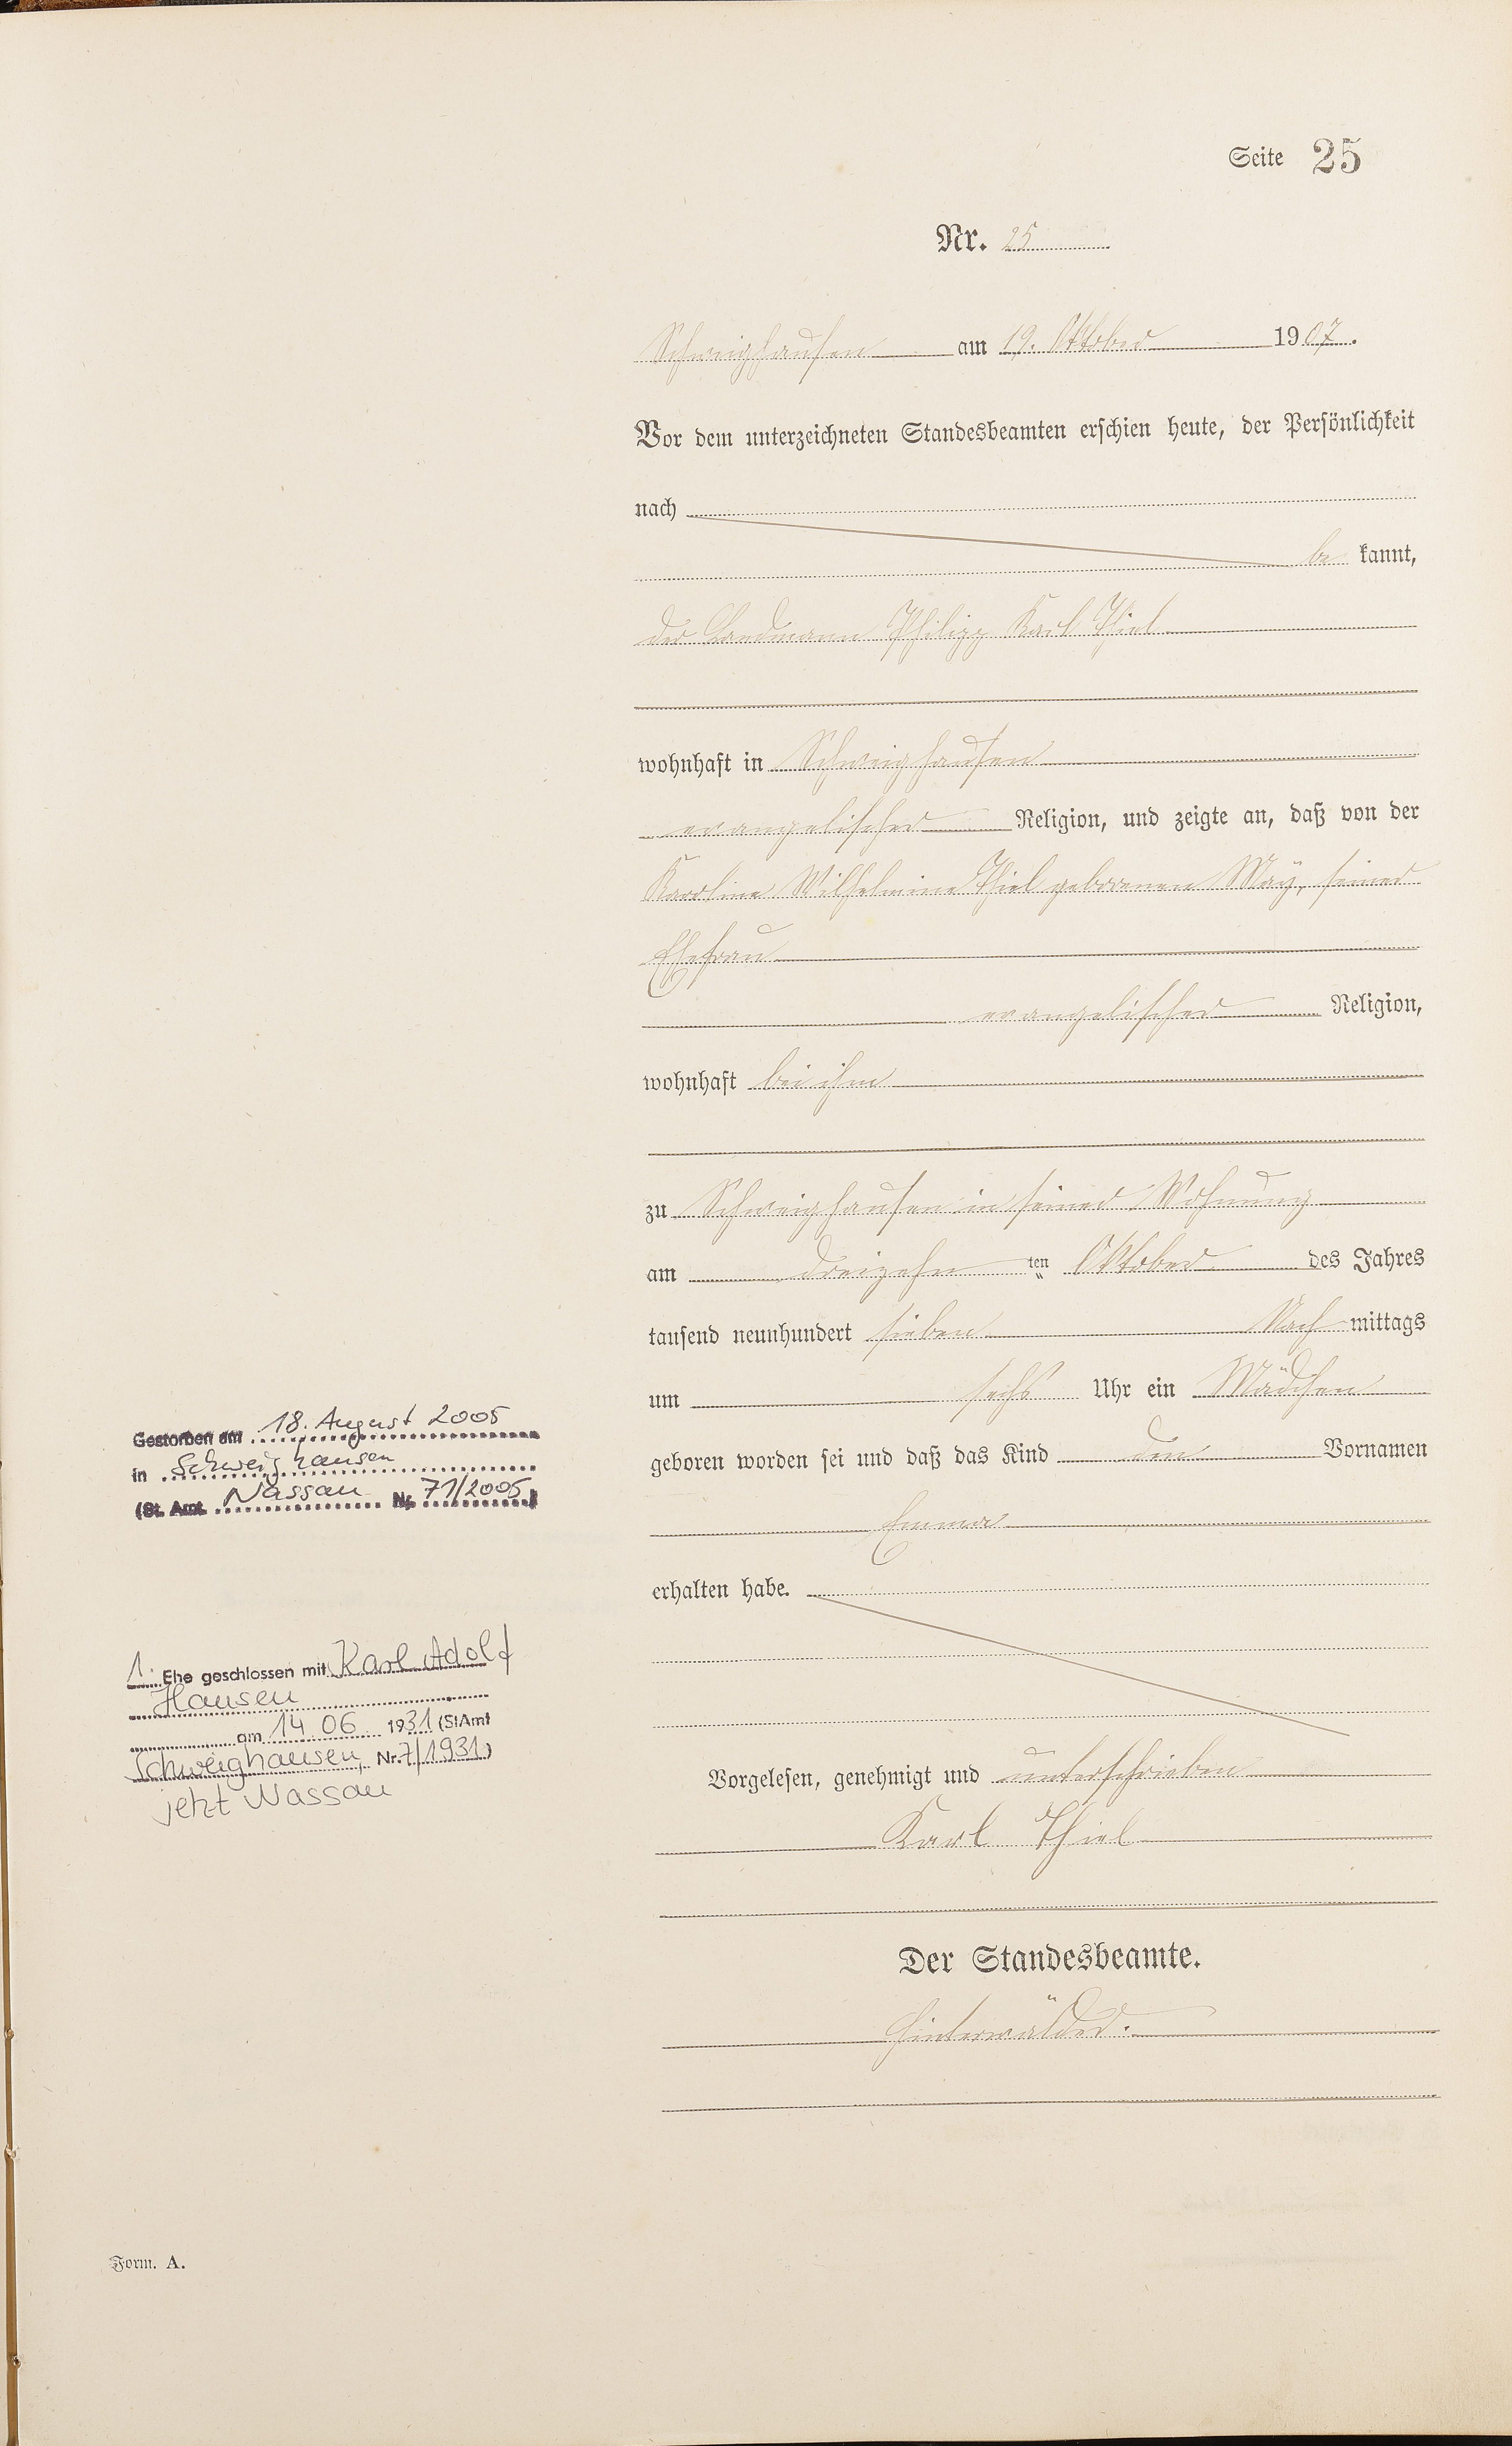 Seite 25
Nr. 25
Schweighausen am 19. Oktober 1907.
Vor dem unterzeichneten Standesbeamten erschien heute, der Persönlichkeit
nach
be kannt,
der Landmann Philipp Karl Thiel
wohnhaft in Schweighausen
evangelischer Religion, und zeigte an, daß von der
Karoline Wilhelmine Thiel geborenen May, seiner
Ehefrau
evangelischer Religion,
wohnhaft bei ihm
zu Schweighausen in seiner Wohnung
am dreizehn ten Oktober des Jahres
tausend neunhundert sieben Nach mittags
um sechs Uhr ein Mädchen
geboren worden sei und daß das Kind den Vornamen
Emma
erhalten habe.
Vorgelesen, genehmigt und unterschrieben
Karl Thiel
Der Standesbeamte.
Hinterwälder.
Gestorben am 18. August 2005
in Schweighausen
(St. Amt Nassau Nr. 71/2005)
1. Ehe geschlossen mit Karl Adolf
Hansen
am 14.06. 1931 (StAmt
Schweighausen, Nr. 7/1931)
jetzt Nassau
Form. A.